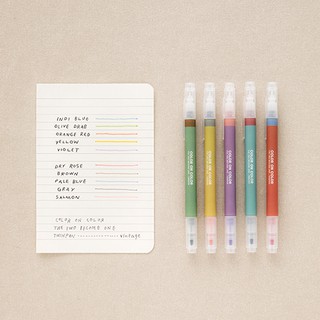 INDI BLUE
OLIVE DRAB
ORANGE RED
YELLOW
VIOLET
DRY ROSE
BROWN
PALE BLUE
GRAY
SALMON
COLOR ON COLOR
TWINPEN vintage
COLOR ON COLOR
COLOR ON COLOR
COLOR ON COLOR
COLOR ON COLOR
COLOR ON COLOR